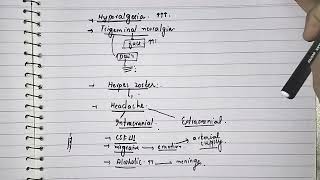 → Hyperalgesia. ↑↑↑
→ Trigeminal neuralgia
face ↑↑
pain
→ Herpes zoster
→ Headache.
Intracranial Extracranial
→ CSF ↓↓
→ migraine → emotion → arterial supply
→ Alcoholic ↑↑ → meninge